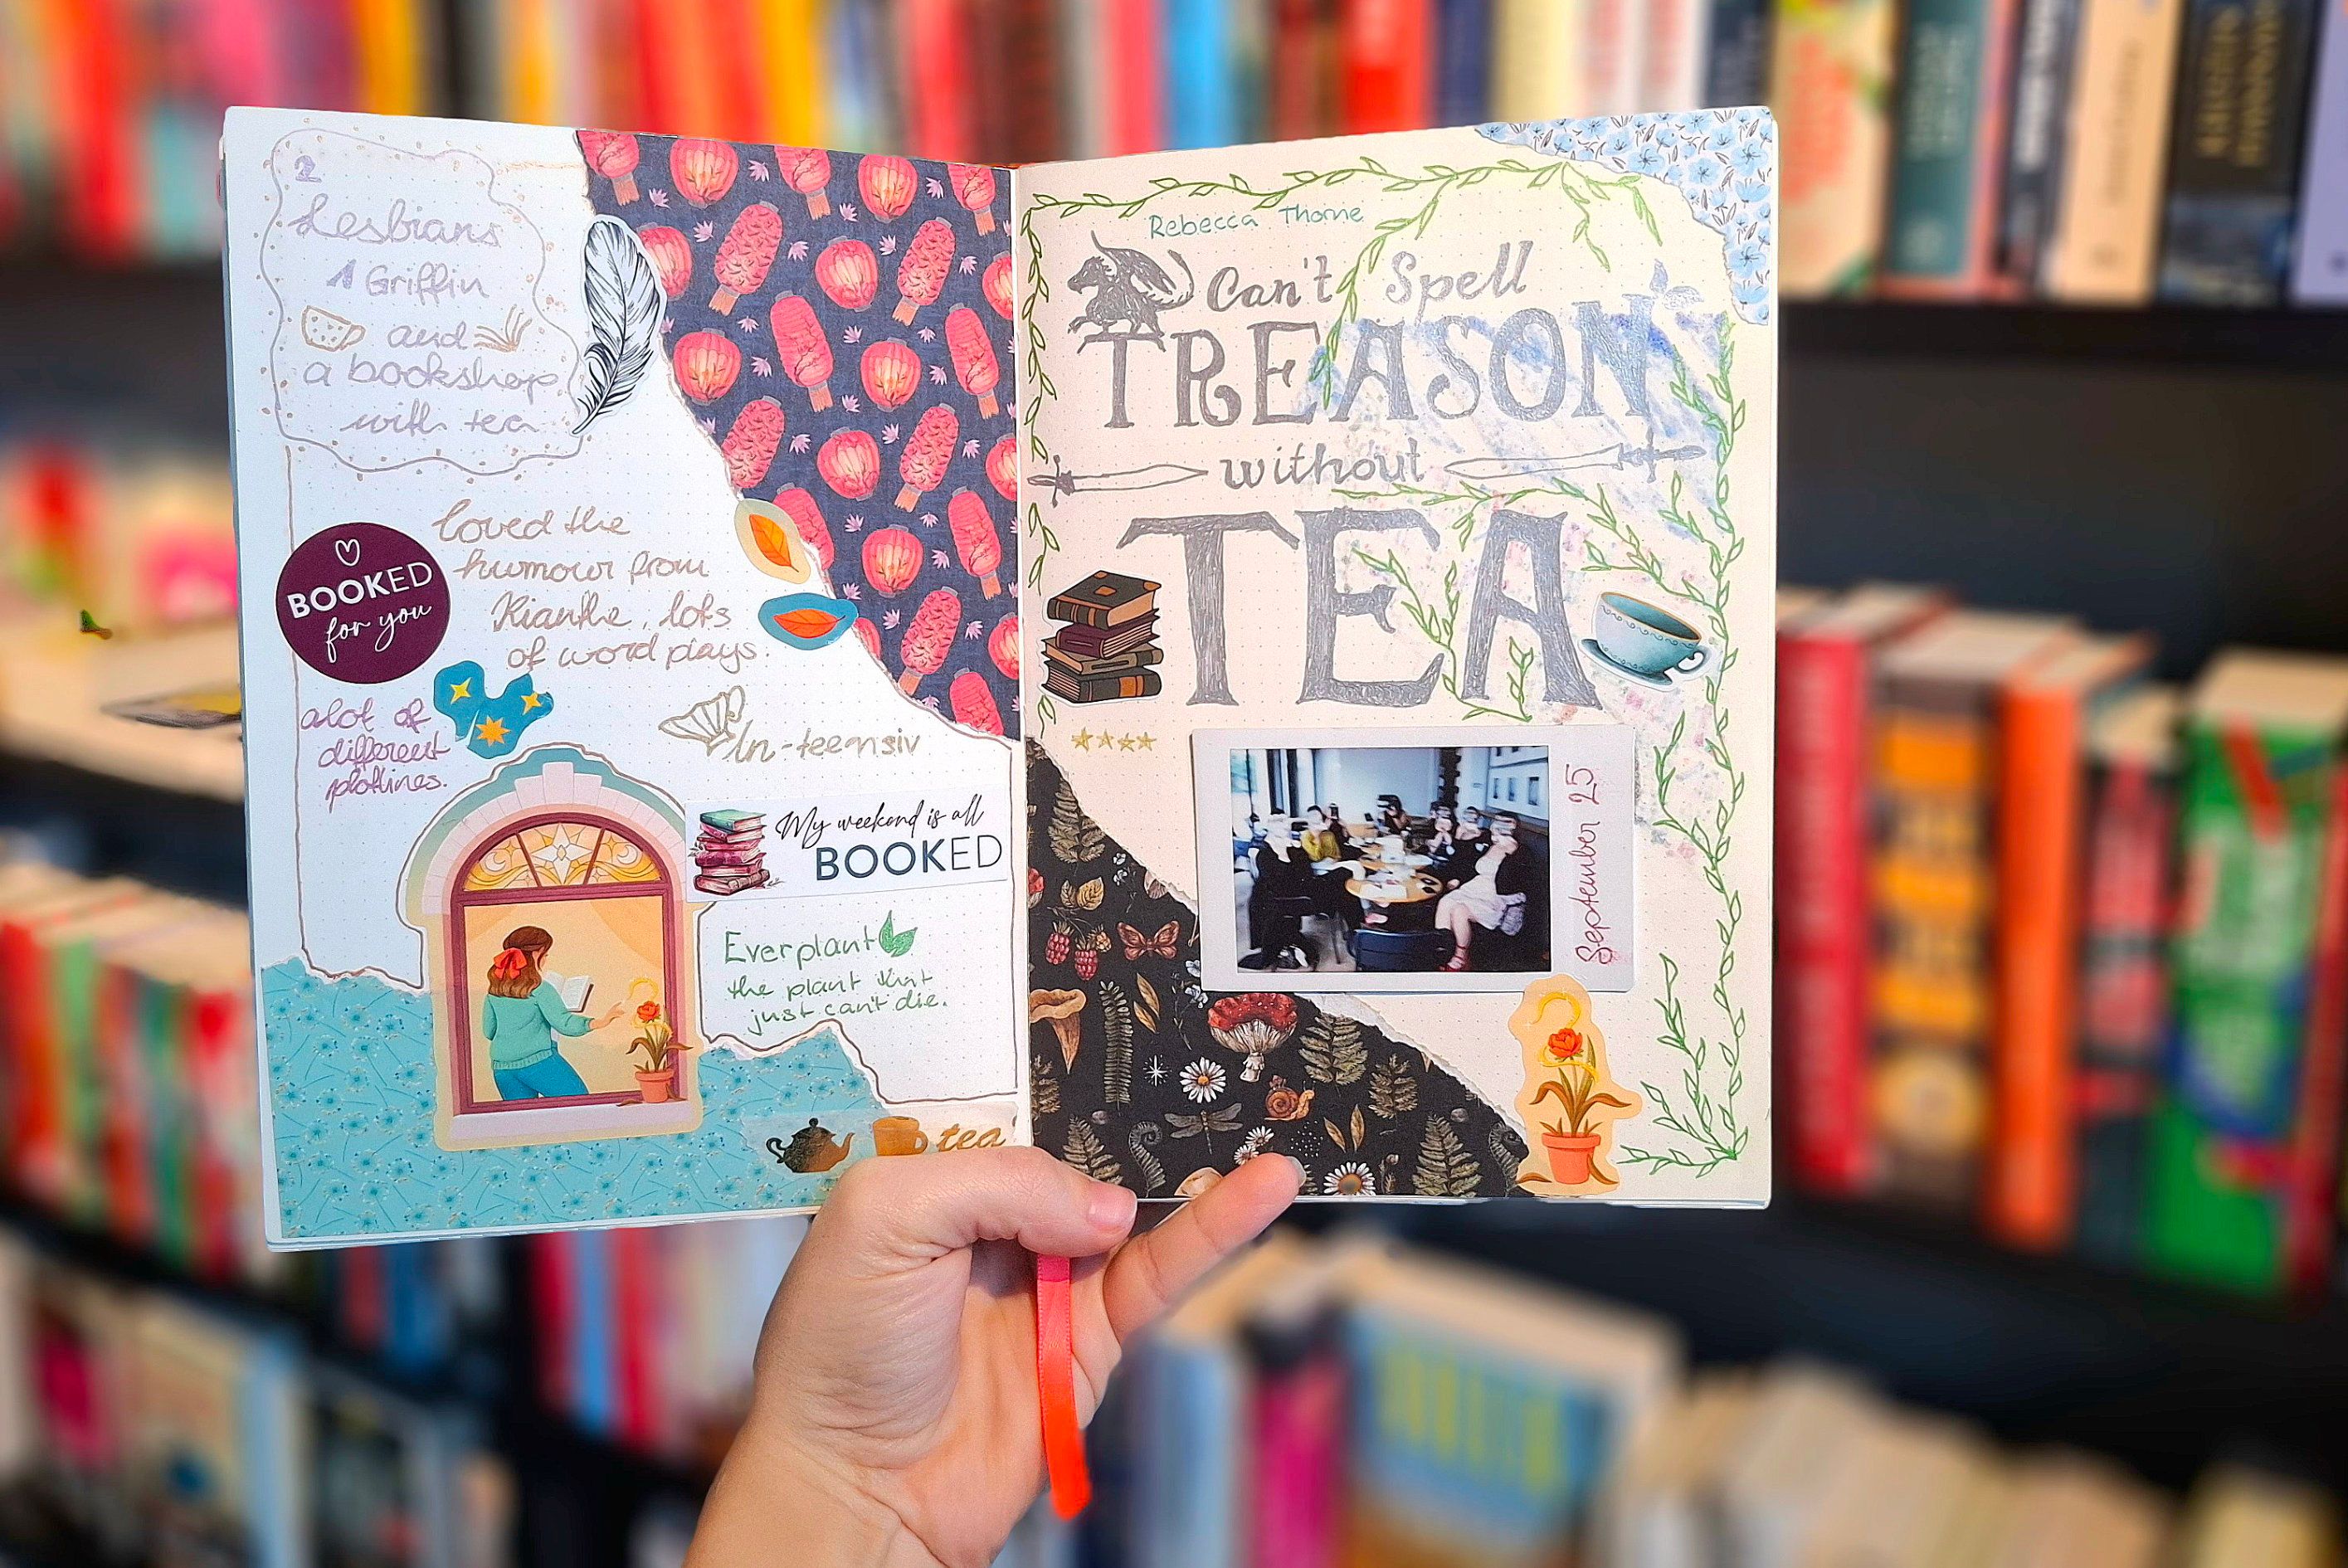 2
Lesbians
1 Griffin
and
a bookshop
with tea
loved the
humour from
Kianthe, lots
of word plays.
BOOKED
for you
alot of
different
plotlines.
In-teensiv
My weekend is all
BOOKED
Everplant
the plant that
just can't die.
tea
Rebecca Thorne
Can't Spell
TREASON
without
TEA
September 25